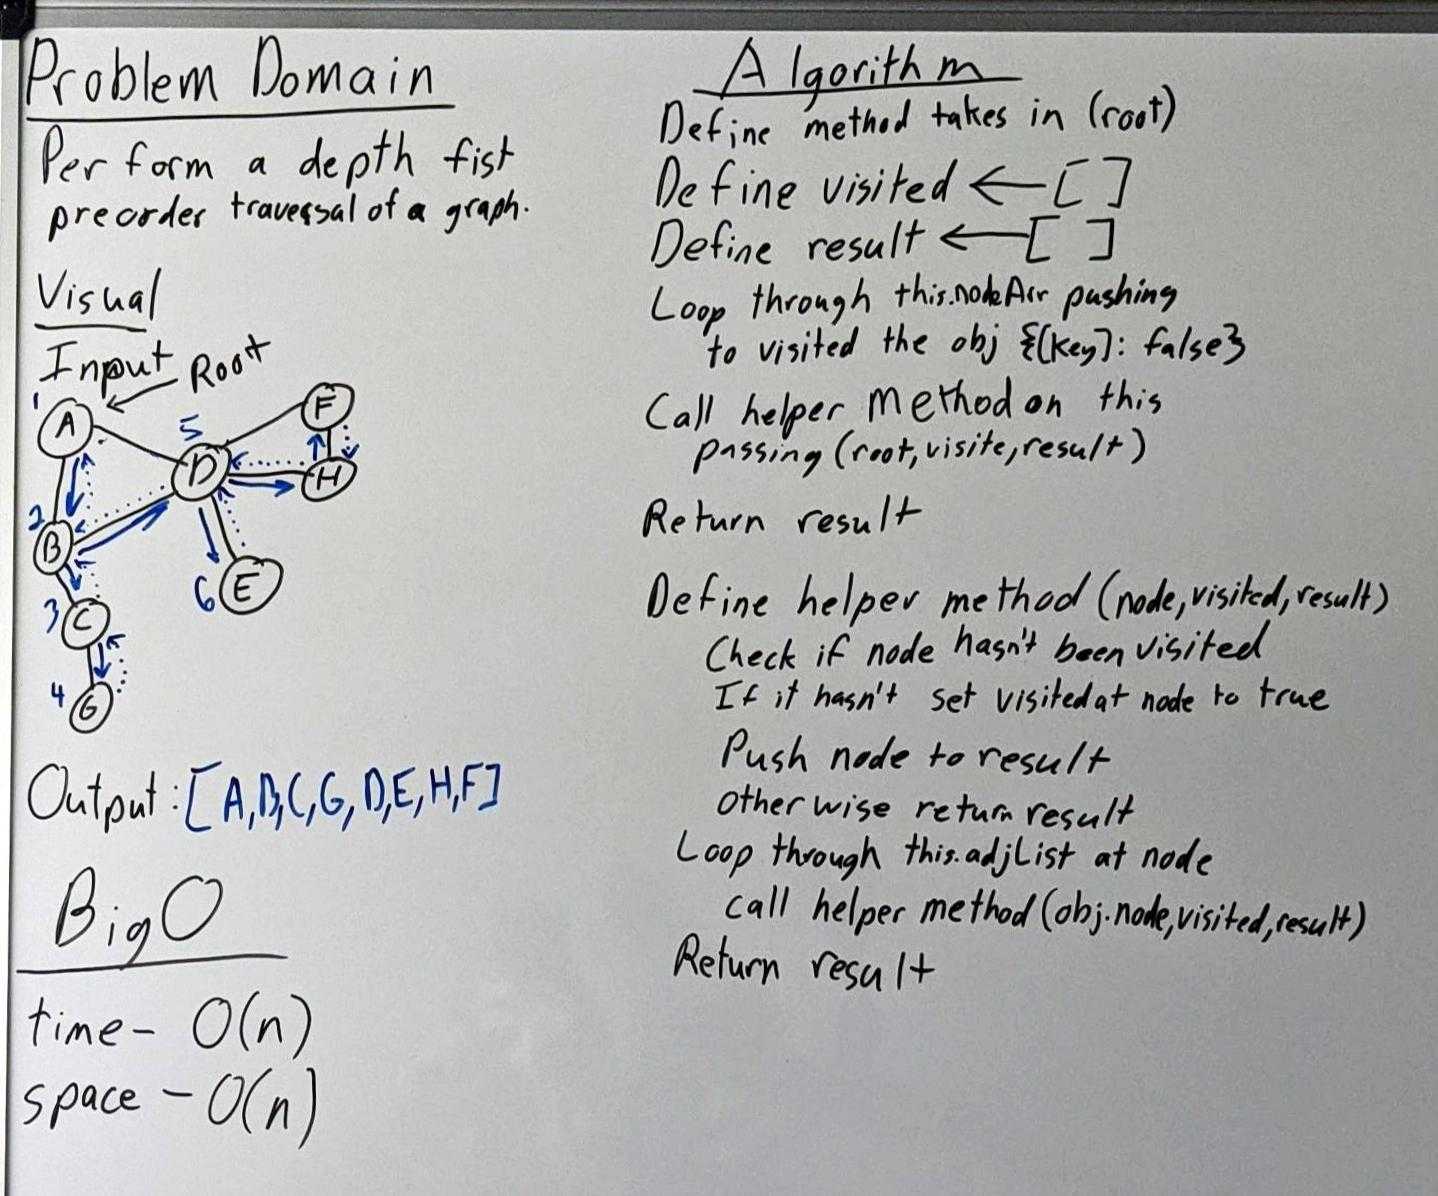 Problem Domain
Perform a depth fist
preorder traversal of a graph.
Visual
Input Root
1
A
F
5
D
H
2
B
6 E
3 C
4 G
Output: [A,B,C,G,D,E,H,F]
Big O
time- O(n)
space - O(n)
Algorithm
Define method takes in (root)
Define visited ← []
Define result ← [ ]
Loop through this.nodeArr pushing
to visited the obj {[key]: false}
Call helper method on this
passing (root, visite, result)
Return result
Define helper method (node, visited, result)
Check if node hasn't been visited
If it hasn't set visited at node to true
Push node to result
otherwise return result
Loop through this.adjList at node
call helper method (obj.node, visited, result)
Return result